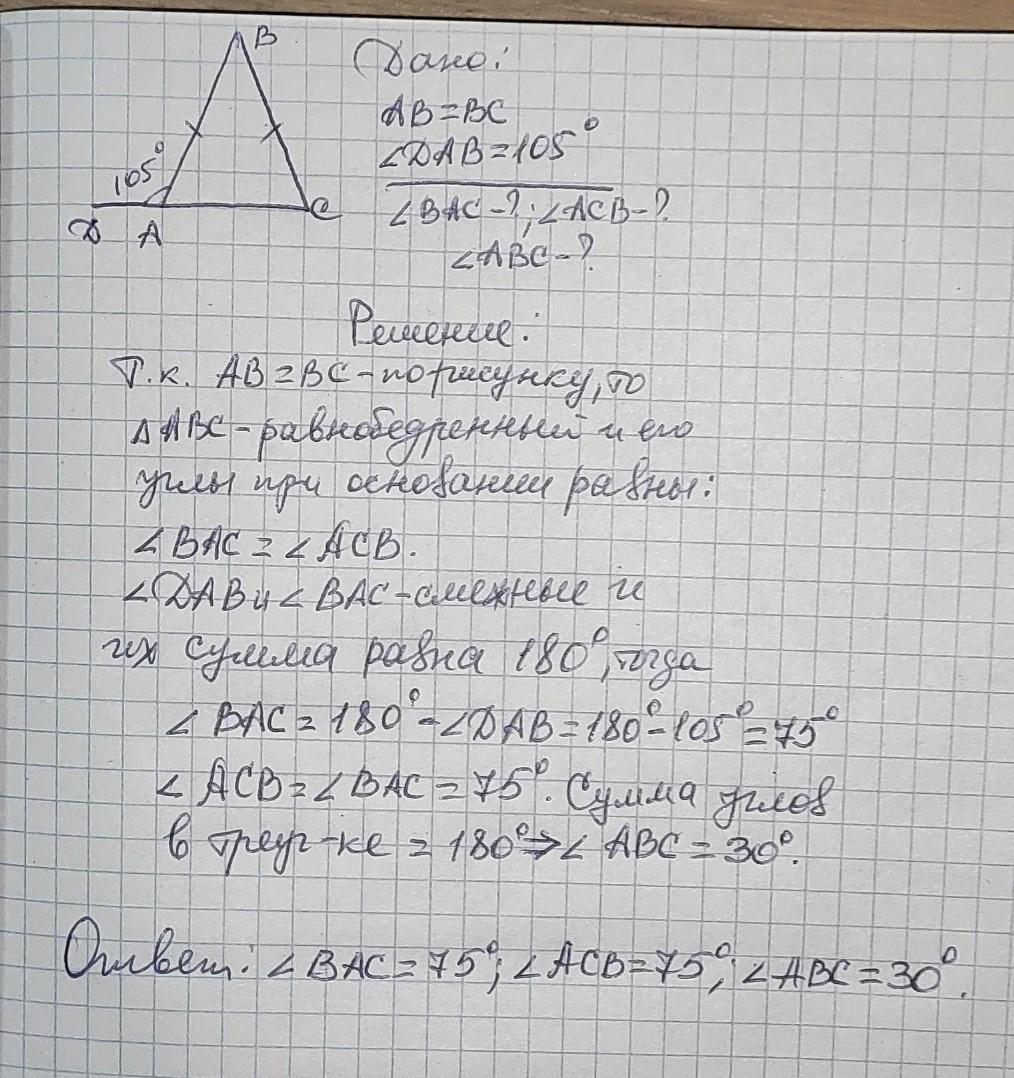 B
105°
D A C
Дано:
AB=BC
∠DAB=105°
∠BAC-?; ∠ACB-?
∠ABC-?
Решение:
Т.к. AB=BC-по рисунку, то
∆ABC-равнобедренный и его
углы при основании равны:
∠BAC=∠ACB.
∠DAB и ∠BAC-смежные и
их сумма равна 180°, тогда
∠BAC=180°-∠DAB=180°-105°=75°
∠ACB=∠BAC=75°. Сумма углов
в треуг-ке = 180°⇒∠ABC=30°.
Ответ: ∠BAC=75°; ∠ACB=75°; ∠ABC=30°.